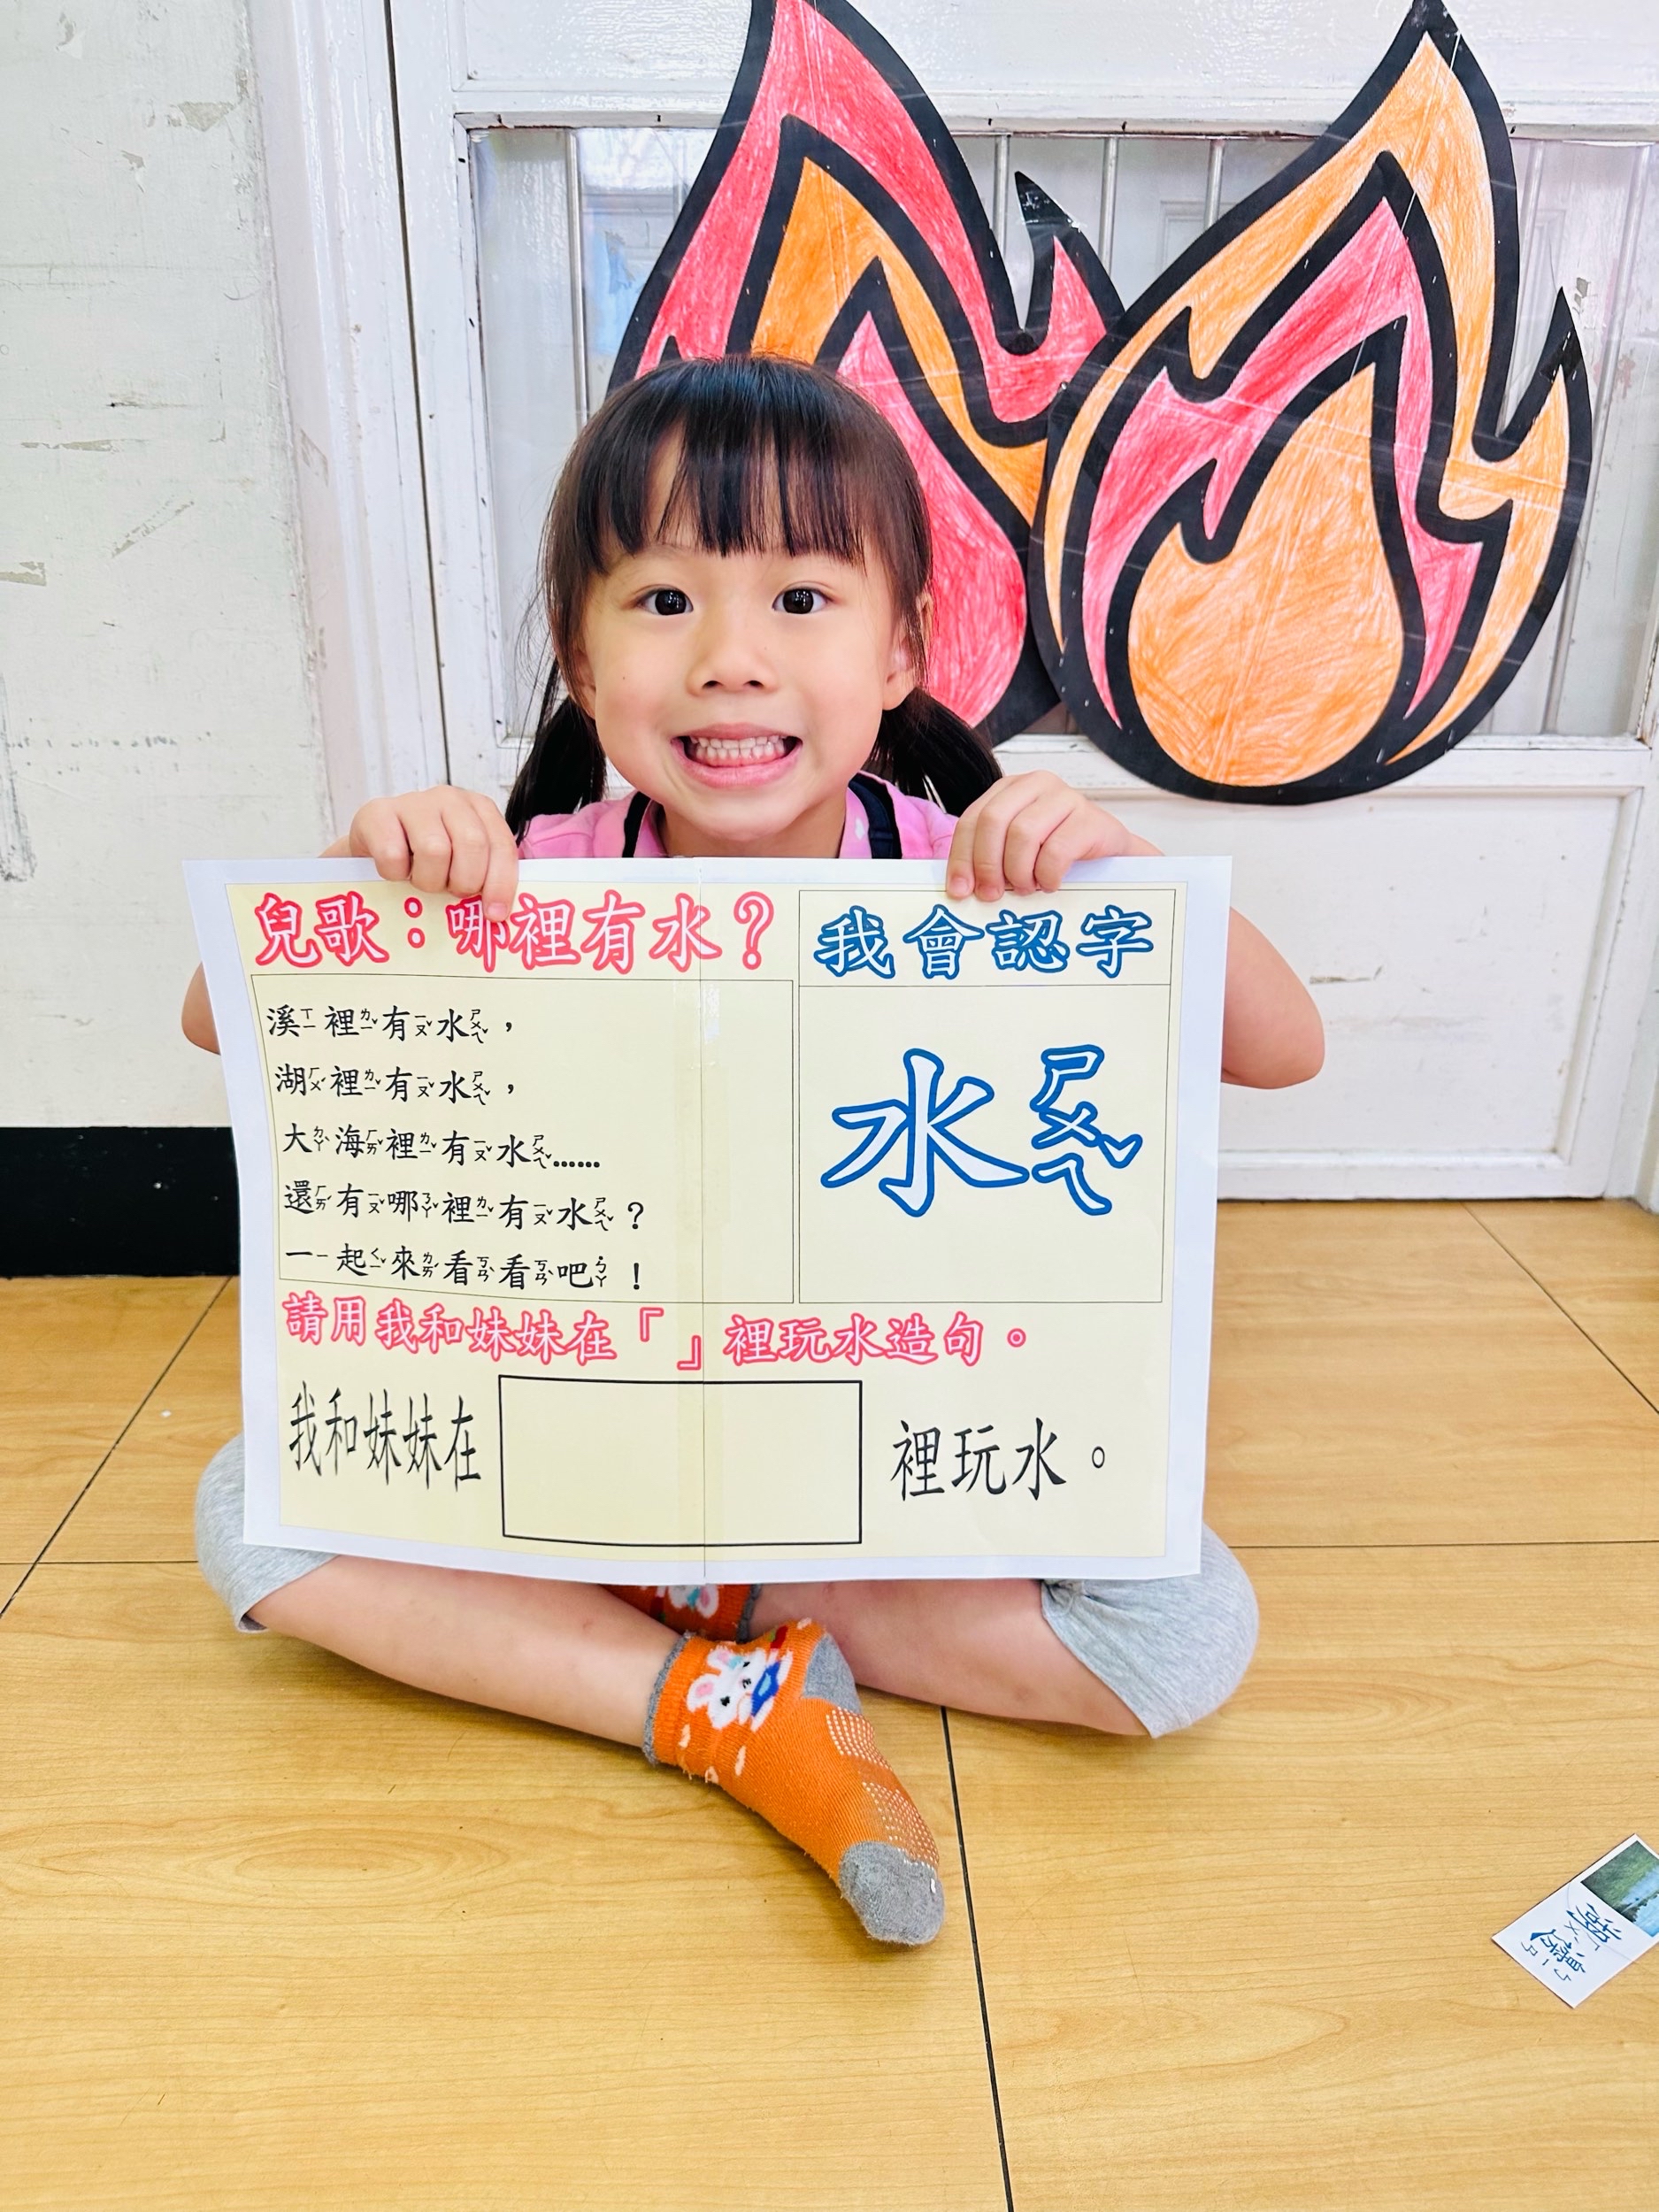 兒歌：哪裡有水？
溪ㄒㄧ裡ㄌㄧˇ有ㄧㄡˇ水ㄕㄨㄟˇ，
湖ㄏㄨˊ裡ㄌㄧˇ有ㄧㄡˇ水ㄕㄨㄟˇ，
大ㄉㄚˋ海ㄏㄞˇ裡ㄌㄧˇ有ㄧㄡˇ水ㄕㄨㄟˇ……
還ㄏㄞˊ有ㄧㄡˇ哪ㄋㄚˇ裡ㄌㄧˇ有ㄧㄡˇ水ㄕㄨㄟˇ？
一ㄧ起ㄑㄧˇ來ㄌㄞˊ看ㄎㄢˋ看ㄎㄢˋ吧ㄅㄚ˙！
我會認字
水ㄕㄨㄟˇ
請用我和妹妹在「 」裡玩水造句。
我和妹妹在
裡玩水。